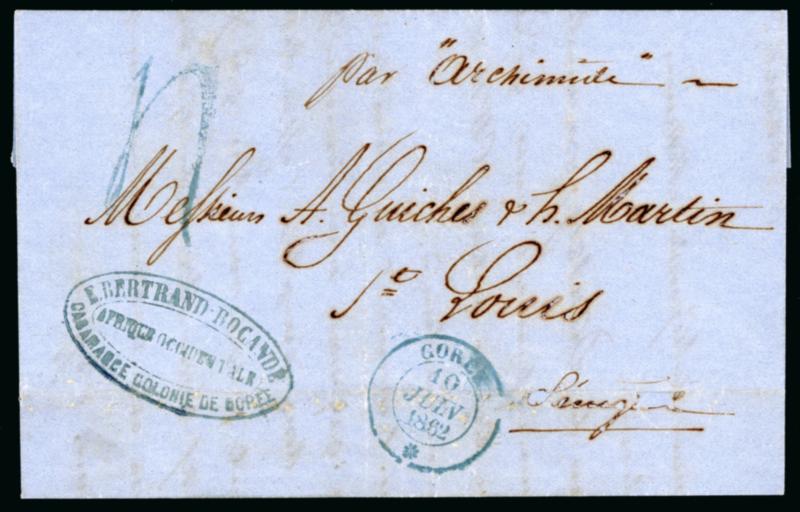 par "Archimède"
4
Messieurs A. Guiches & h. Martin
St Louis
Sénégal
E. BERTRAND-BOCANDÉ
AFRIQUE OCCIDENTALE
CASAMANCE COLONIE DE GORÉE
GORÉE
10
JUIL
1862